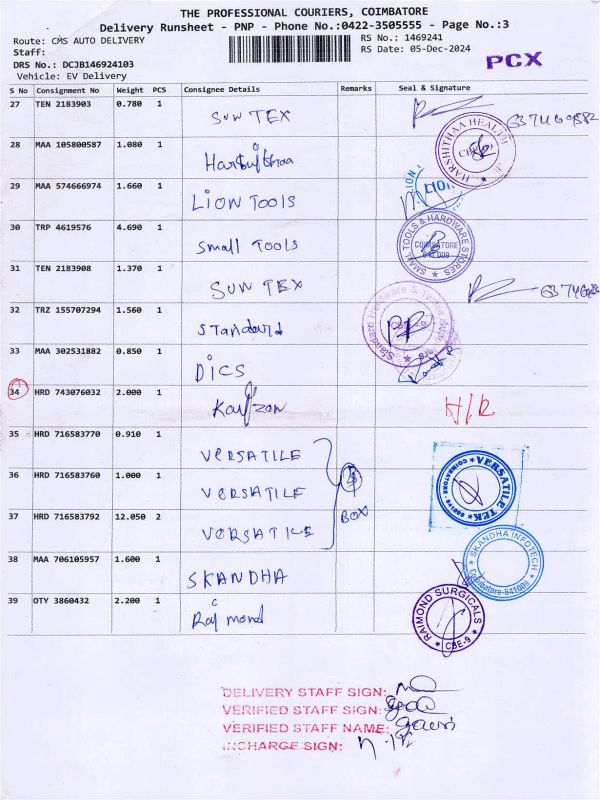 THE PROFESSIONAL COURIERS, COIMBATORE
Delivery Runsheet - PNP - Phone No.:0422-3505555 - Page No.:3
Route: CMS AUTO DELIVERY
RS No.: 1469241
Staff:
RS Date: 05-Dec-2024
PCX
DRS No.: DCJB146924103
Vehicle: EV Delivery
S No Consignment No Weight PCS Consignee Details Remarks Seal & Signature
27 TEN 2183903 0.780 1 SUN TEX
28 MAA 105800587 1.080 1 HARSHITHAA HEALTH
29 MAA 574666974 1.660 1 LION TOOLS LION
30 TRP 4619576 4.690 1 Small TOOLS SMALL TOOLS & HARDWARE STORES COIMBATORE 641 009
31 TEN 2183908 1.370 1 SUN TEX
32 TRZ 155707294 1.560 1 Standard Standard Hardware &
33 MAA 302531882 0.850 1 DICS
34 HRD 743076032 2.000 1
35 HRD 716583770 0.910 1 VERSATILE
36 HRD 716583760 1.000 1 VERSATILE VERSATILE TEK COIMBATORE
BOX
37 HRD 716583792 12.050 2 VERSATILE
38 MAA 706105957 1.600 1 SKANDHA SKANDHA INFOTECH Coimbatore-641009
39 OTY 3860432 2.200 1 Raimond RAIMOND SURGICALS CBE-9
DELIVERY STAFF SIGN:
VERIFIED STAFF SIGN:
VERIFIED STAFF NAME:
INCHARGE SIGN: